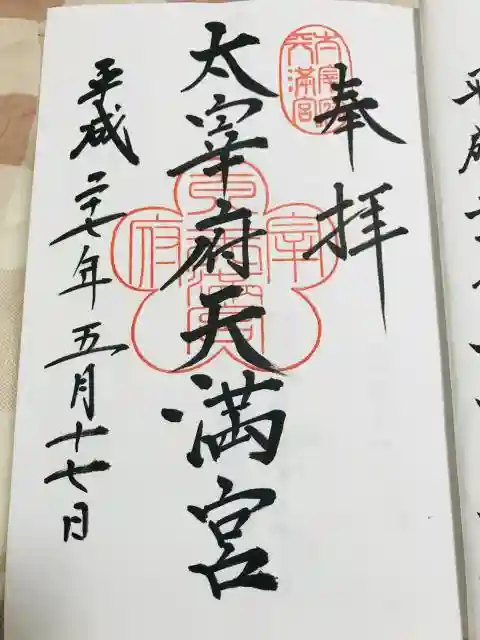 奉拝
太宰府天満宮
平成二十七年五月十七日